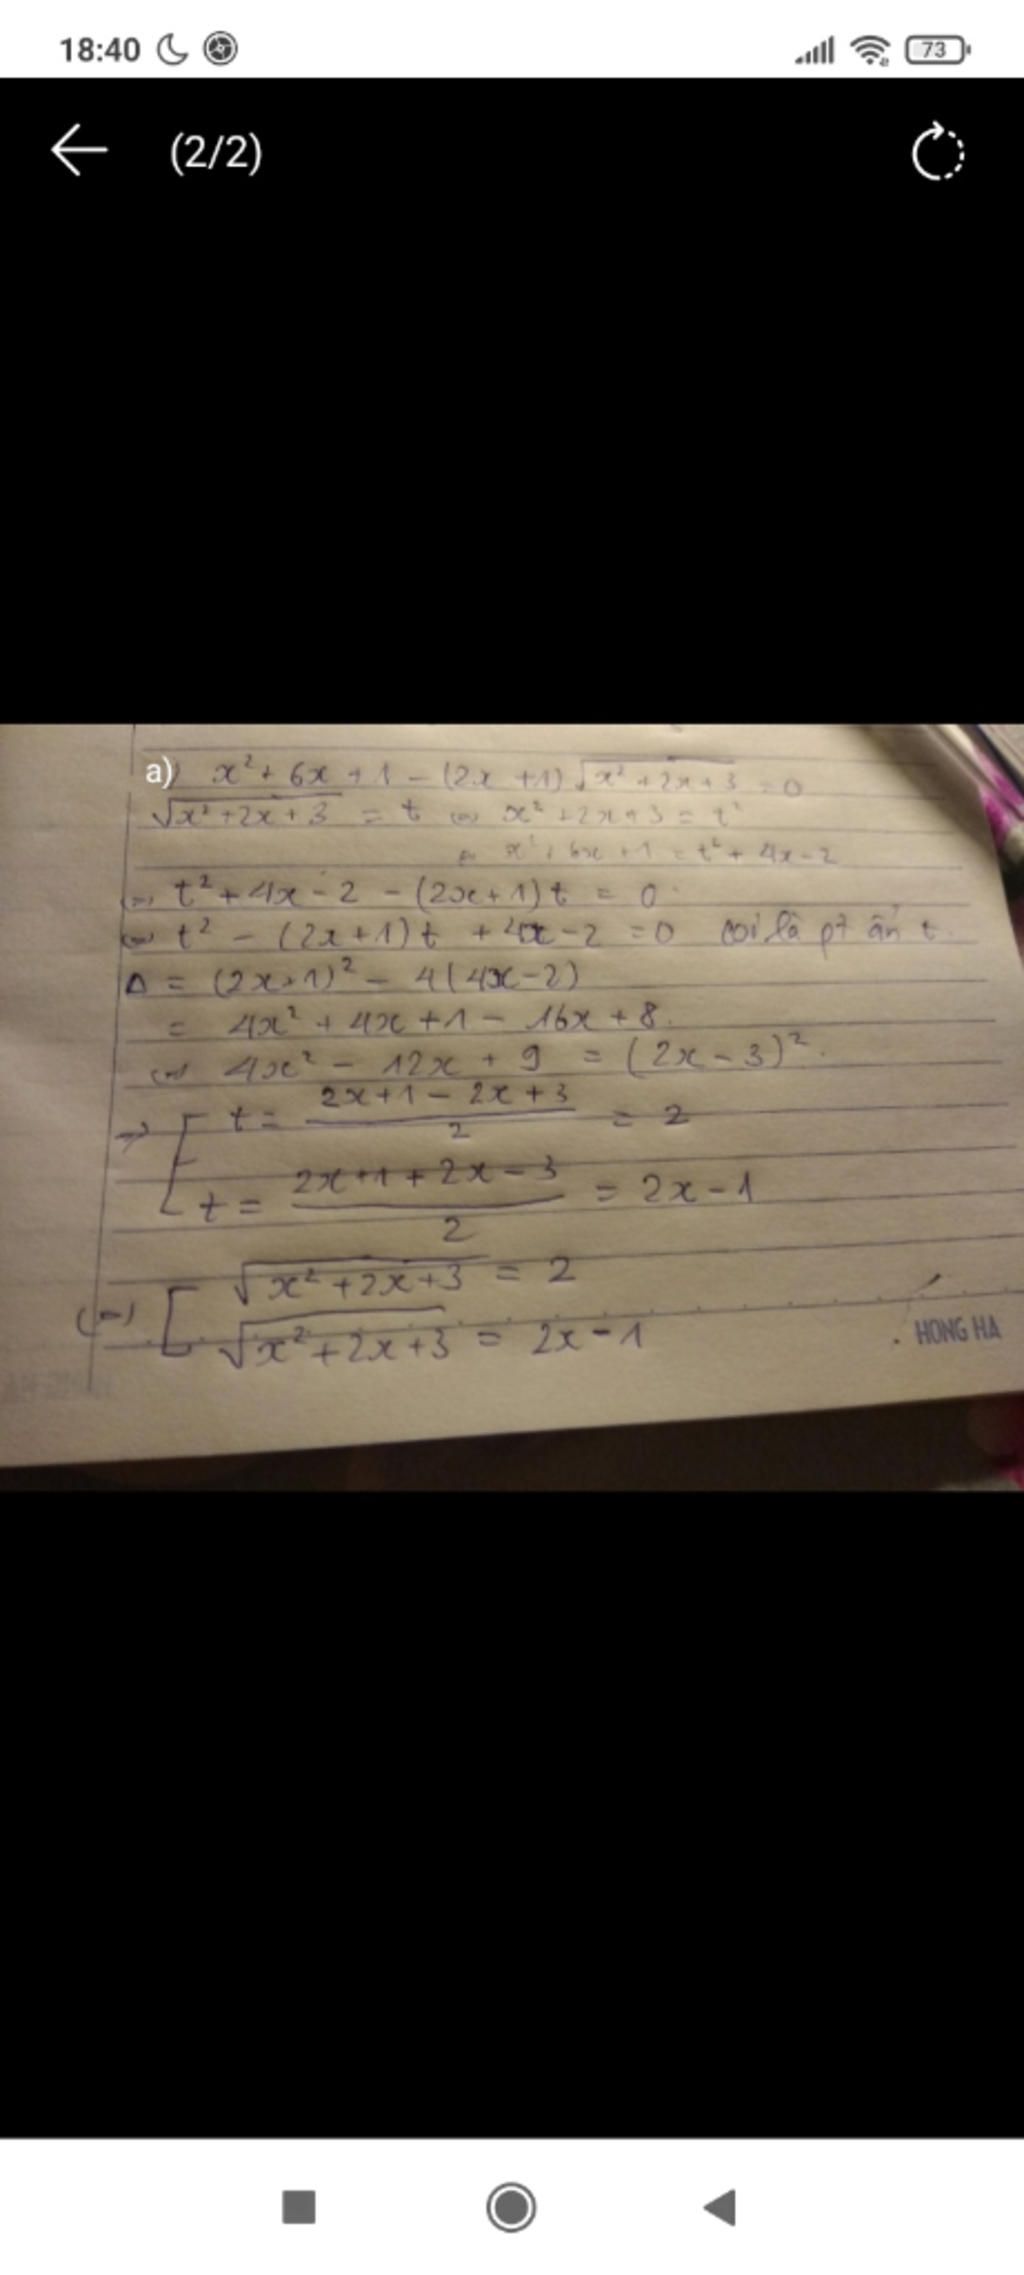 18:40 73
(2/2)
a) x² + 6x + 1 - (2x + 1) √(x² + 2x + 3) = 0
√(x² + 2x + 3) = t (=) x² + 2x + 3 = t²
(=) x² + 6x + 1 = t² + 4x - 2
(=) t² + 4x - 2 - (2x + 1) t = 0
(=) t² - (2x + 1) t + 4x - 2 = 0 coi là pt ẩn t.
Δ = (2x+1)² - 4(4x-2)
= 4x² + 4x + 1 - 16x + 8.
(=) 4x² - 12x + 9 = (2x - 3)².
=> [ t = (2x + 1 - 2x + 3)/2 = 2
t = (2x + 1 + 2x - 3)/2 = 2x - 1
(=) [ √(x² + 2x + 3) = 2
√(x² + 2x + 3) = 2x - 1
HONG HA